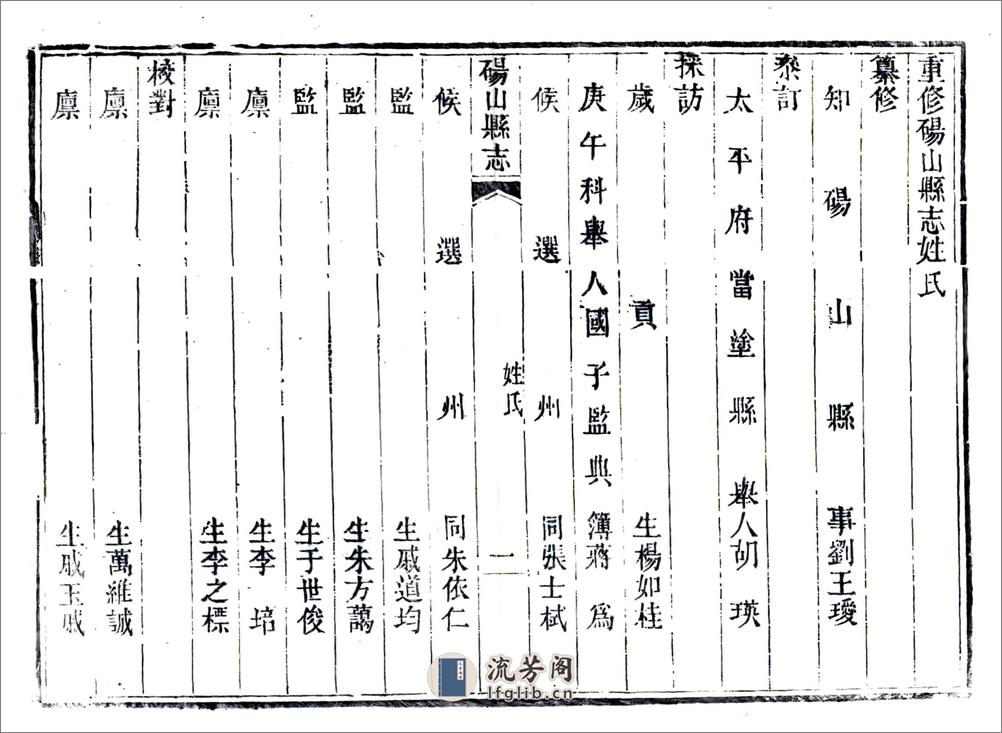 重修碭山縣志姓氏
纂修
知碭山縣事劉王瑷
叅訂
太平府當塗縣舉人胡瑛
採訪
歲貢生楊如桂
庚午科舉人國子監典簿蔣為
候選州同張士栻
碭山縣志
姓氏
一
候選州同朱依仁
監生戚道均
監生朱方藹
監生于世俊
廩生李培
廩生李之標
校對
廩生萬維誠
廩生戚玉戚
流芳阁
lfglib.cn